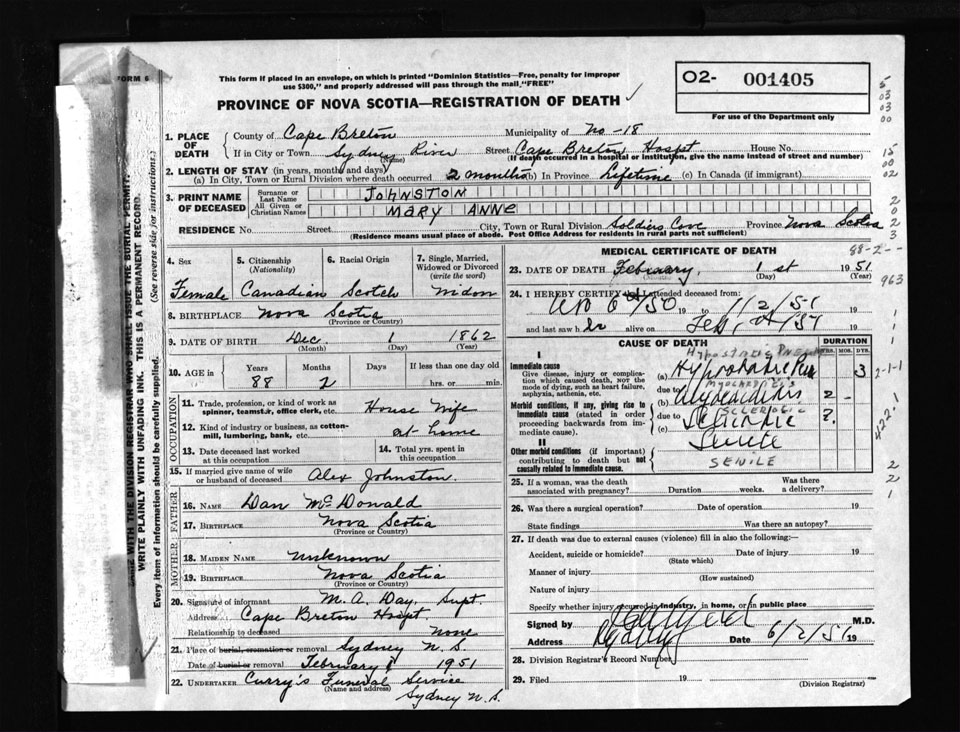 FORM 6
This form if placed in an envelope, on which is printed "Dominion Statistics—Free, penalty for improper
use $300," and properly addressed will pass through the mail "FREE"
PROVINCE OF NOVA SCOTIA—REGISTRATION OF DEATH
O2- 001405
For use of the Department only
1. PLACE OF DEATH
County of Cape Breton Municipality of No-18
If in City or Town Sydney River Street Cape Breton Hospt. House No.
(Name) (If death occurred in a hospital or institution, give the name instead of street and number)
2. LENGTH OF STAY (in years, months and days)
(a) In City, Town or Rural Division where death occurred 2 months (b) In Province Lifetime (c) In Canada (if immigrant)
3. PRINT NAME OF DECEASED
Surname or Last Name JOHNSTON
All Given or Christian Names MARY ANNE
RESIDENCE No. Street City, Town or Rural Division Soldiers Cove Province Nova Scotia
(Residence means usual place of abode. Post Office Address for residents in rural parts not sufficient)
4. Sex
Female
5. Citizenship
(Nationality)
Canadian
6. Racial Origin
Scotch
7. Single, Married,
Widowed or Divorced
(write the word)
Widow
8. BIRTHPLACE Nova Scotia
(Province or Country)
9. DATE OF BIRTH Dec. 1 1862
(Month) (Day) (Year)
10. AGE in
Years Months Days If less than one day old
88 2 hrs. or min.
OCCUPATION
11. Trade, profession, or kind of work as
spinner, teamster, office clerk, etc. House Wife
12. Kind of industry or business, as cotton-
mill, lumbering, bank, etc. at home
13. Date deceased last worked
at this occupation
14. Total yrs. spent in
this occupation
15. If married give name of wife
or husband of deceased Alex Johnston.
FATHER
16. NAME Dan McDonald
17. BIRTHPLACE Nova Scotia
MOTHER
18. MAIDEN NAME Unknown
19. BIRTHPLACE Nova Scotia
(Province or Country)
20. Signature of informant M. A. Day, Supt.
Address Cape Breton Hospt.
Relationship to deceased none
21. Place of burial, cremation or removal Sydney N. S.
Date of burial or removal February 1951
22. UNDERTAKER Curry's Funeral Service
(Name and address) Sydney N. S.
MEDICAL CERTIFICATE OF DEATH
88-2--
23. DATE OF DEATH February, 1st 1951
(Day) (Year)
963
24. I HEREBY CERTIFY attended deceased from:
19 to 1/2/51 19
and last saw her alive on 19
CAUSE OF DEATH
DURATION
YRS. MOS. DYS.
I
Immediate cause
Give disease, injury or complica-
tion which caused death, not the
mode of dying, such as heart failure,
asphyxia, asthenia, etc.
HYPOSTATIC PNEU
(a) 3
2-1-1
Morbid conditions, if any, giving rise to
immediate cause (stated in order
proceeding backwards from im-
mediate cause).
due to
MYOCARDITIS
(b) 2 -
due to
SCLEROTIC
(c) ?
4221
II
Other morbid conditions (if important)
contributing to death but not
causally related to immediate cause.
Senile
SENILE
25. If a woman, was the death
associated with pregnancy? Duration weeks. Was there
a delivery?
26. Was there a surgical operation? Date of operation 19
State findings Was there an autopsy?
27. If death was due to external causes (violence) fill in also the following:—
Accident, suicide or homicide? Date of injury 19
(State which)
Manner of injury
(How sustained)
Nature of injury
Specify whether injury occurred in industry, in home, or in public place
Signed by M.D.
Address Sydney Date 6/2/51 19
28. Division Registrar's Record Number
29. Filed 19
(Division Registrar)
WITH THE DIVISION REGISTRAR WHO SHALL ISSUE THE BURIAL PERMIT
WRITE PLAINLY WITH UNFADING INK. THIS IS A PERMANENT RECORD.
Every item of information should be carefully supplied. (See reverse side for instructions.)
5
03
03
00
15
00
02
2
0
2
3
1
1
1
2
2
1